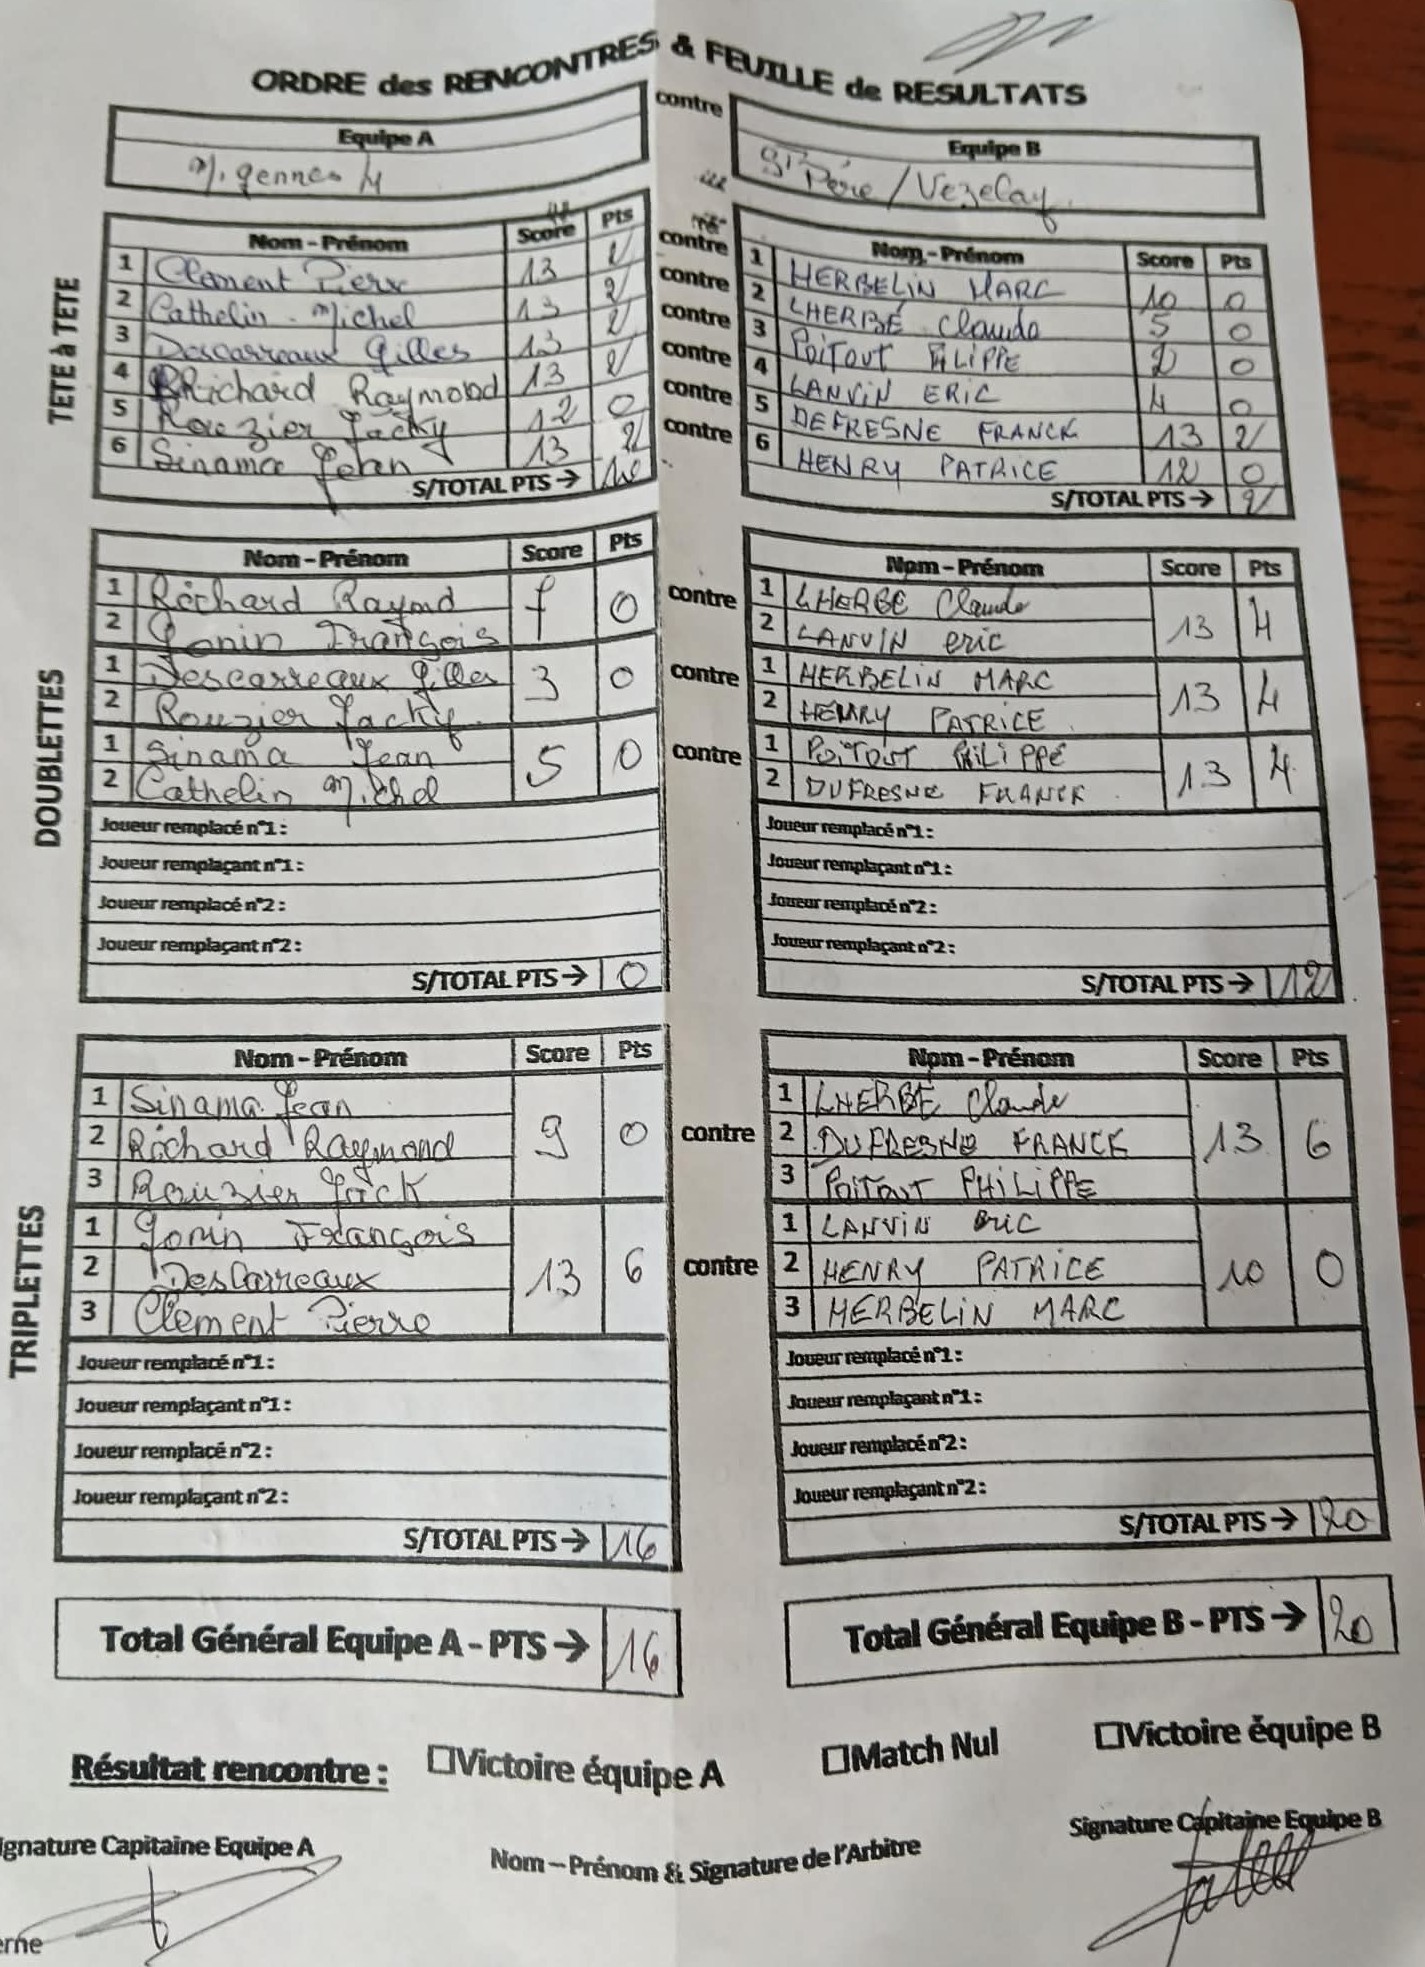 ORDRE des RENCONTRES & FEUILLE de RESULTATS
Equipe A contre Equipe B
Migennes 4 St Père / Vezelay
TETE à TETE
Nom - Prénom Score Pts contre Nom - Prénom Score Pts
1 Clement Pierre 13 2 contre 1 HERBELIN MARC 10 0
2 Cathelin Michel 13 2 contre 2 LHERBÉ Claude 5 0
3 Descarreaux Gilles 13 2 contre 3 POITOUT PHILIPPE 2 0
4 Richard Raymond 13 2 contre 4 LANVIN ERIC 4 0
5 Rouzier Jacky 12 0 contre 5 DEFRESNE FRANCK 13 2
6 Sinama Jean 13 2 contre 6 HENRY PATRICE 12 0
S/TOTAL PTS → 10 S/TOTAL PTS → 2
DOUBLETTES
Nom - Prénom Score Pts Nom - Prénom Score Pts
1 Richard Raymd 7 0 contre 1 LHERBE Claude 13 4
2 Gonin François 2 LANVIN eric
1 Descarreaux Gilles 3 0 contre 1 HERBELIN MARC 13 4
2 Rouzier Jacky 2 HENRY PATRICE
1 Sinama Jean 5 0 contre 1 POITOUT PHILIPPE 13 4
2 Cathelin Michel 2 DUFRESNE FRANCK
Joueur remplacé n°1 : Joueur remplacé n°1 :
Joueur remplaçant n°1 : Joueur remplaçant n°1 :
Joueur remplacé n°2 : Joueur remplacé n°2 :
Joueur remplaçant n°2 : Joueur remplaçant n°2 :
S/TOTAL PTS → 0 S/TOTAL PTS → 12
TRIPLETTES
Nom - Prénom Score Pts Nom - Prénom Score Pts
1 Sinama Jean 1 LHERBÉ Claude
2 Richard Raymond 9 0 contre 2 DUFRESNE FRANCK 13 6
3 Rouzier Jack 3 POITOUT PHILIPPE
1 Gonin François 1 LANVIN Eric
2 Descarreaux 13 6 contre 2 HENRY PATRICE 10 0
3 Clement Pierre 3 HERBELIN MARC
Joueur remplacé n°1 : Joueur remplacé n°1 :
Joueur remplaçant n°1 : Joueur remplaçant n°1 :
Joueur remplacé n°2 : Joueur remplacé n°2 :
Joueur remplaçant n°2 : Joueur remplaçant n°2 :
S/TOTAL PTS → 16 S/TOTAL PTS → 20
Total Général Equipe A - PTS → 16 Total Général Equipe B - PTS → 20
Résultat rencontre : Victoire équipe A Match Nul Victoire équipe B
ignature Capitaine Equipe A Nom – Prénom & Signature de l'Arbitre Signature Capitaine Equipe B
erne